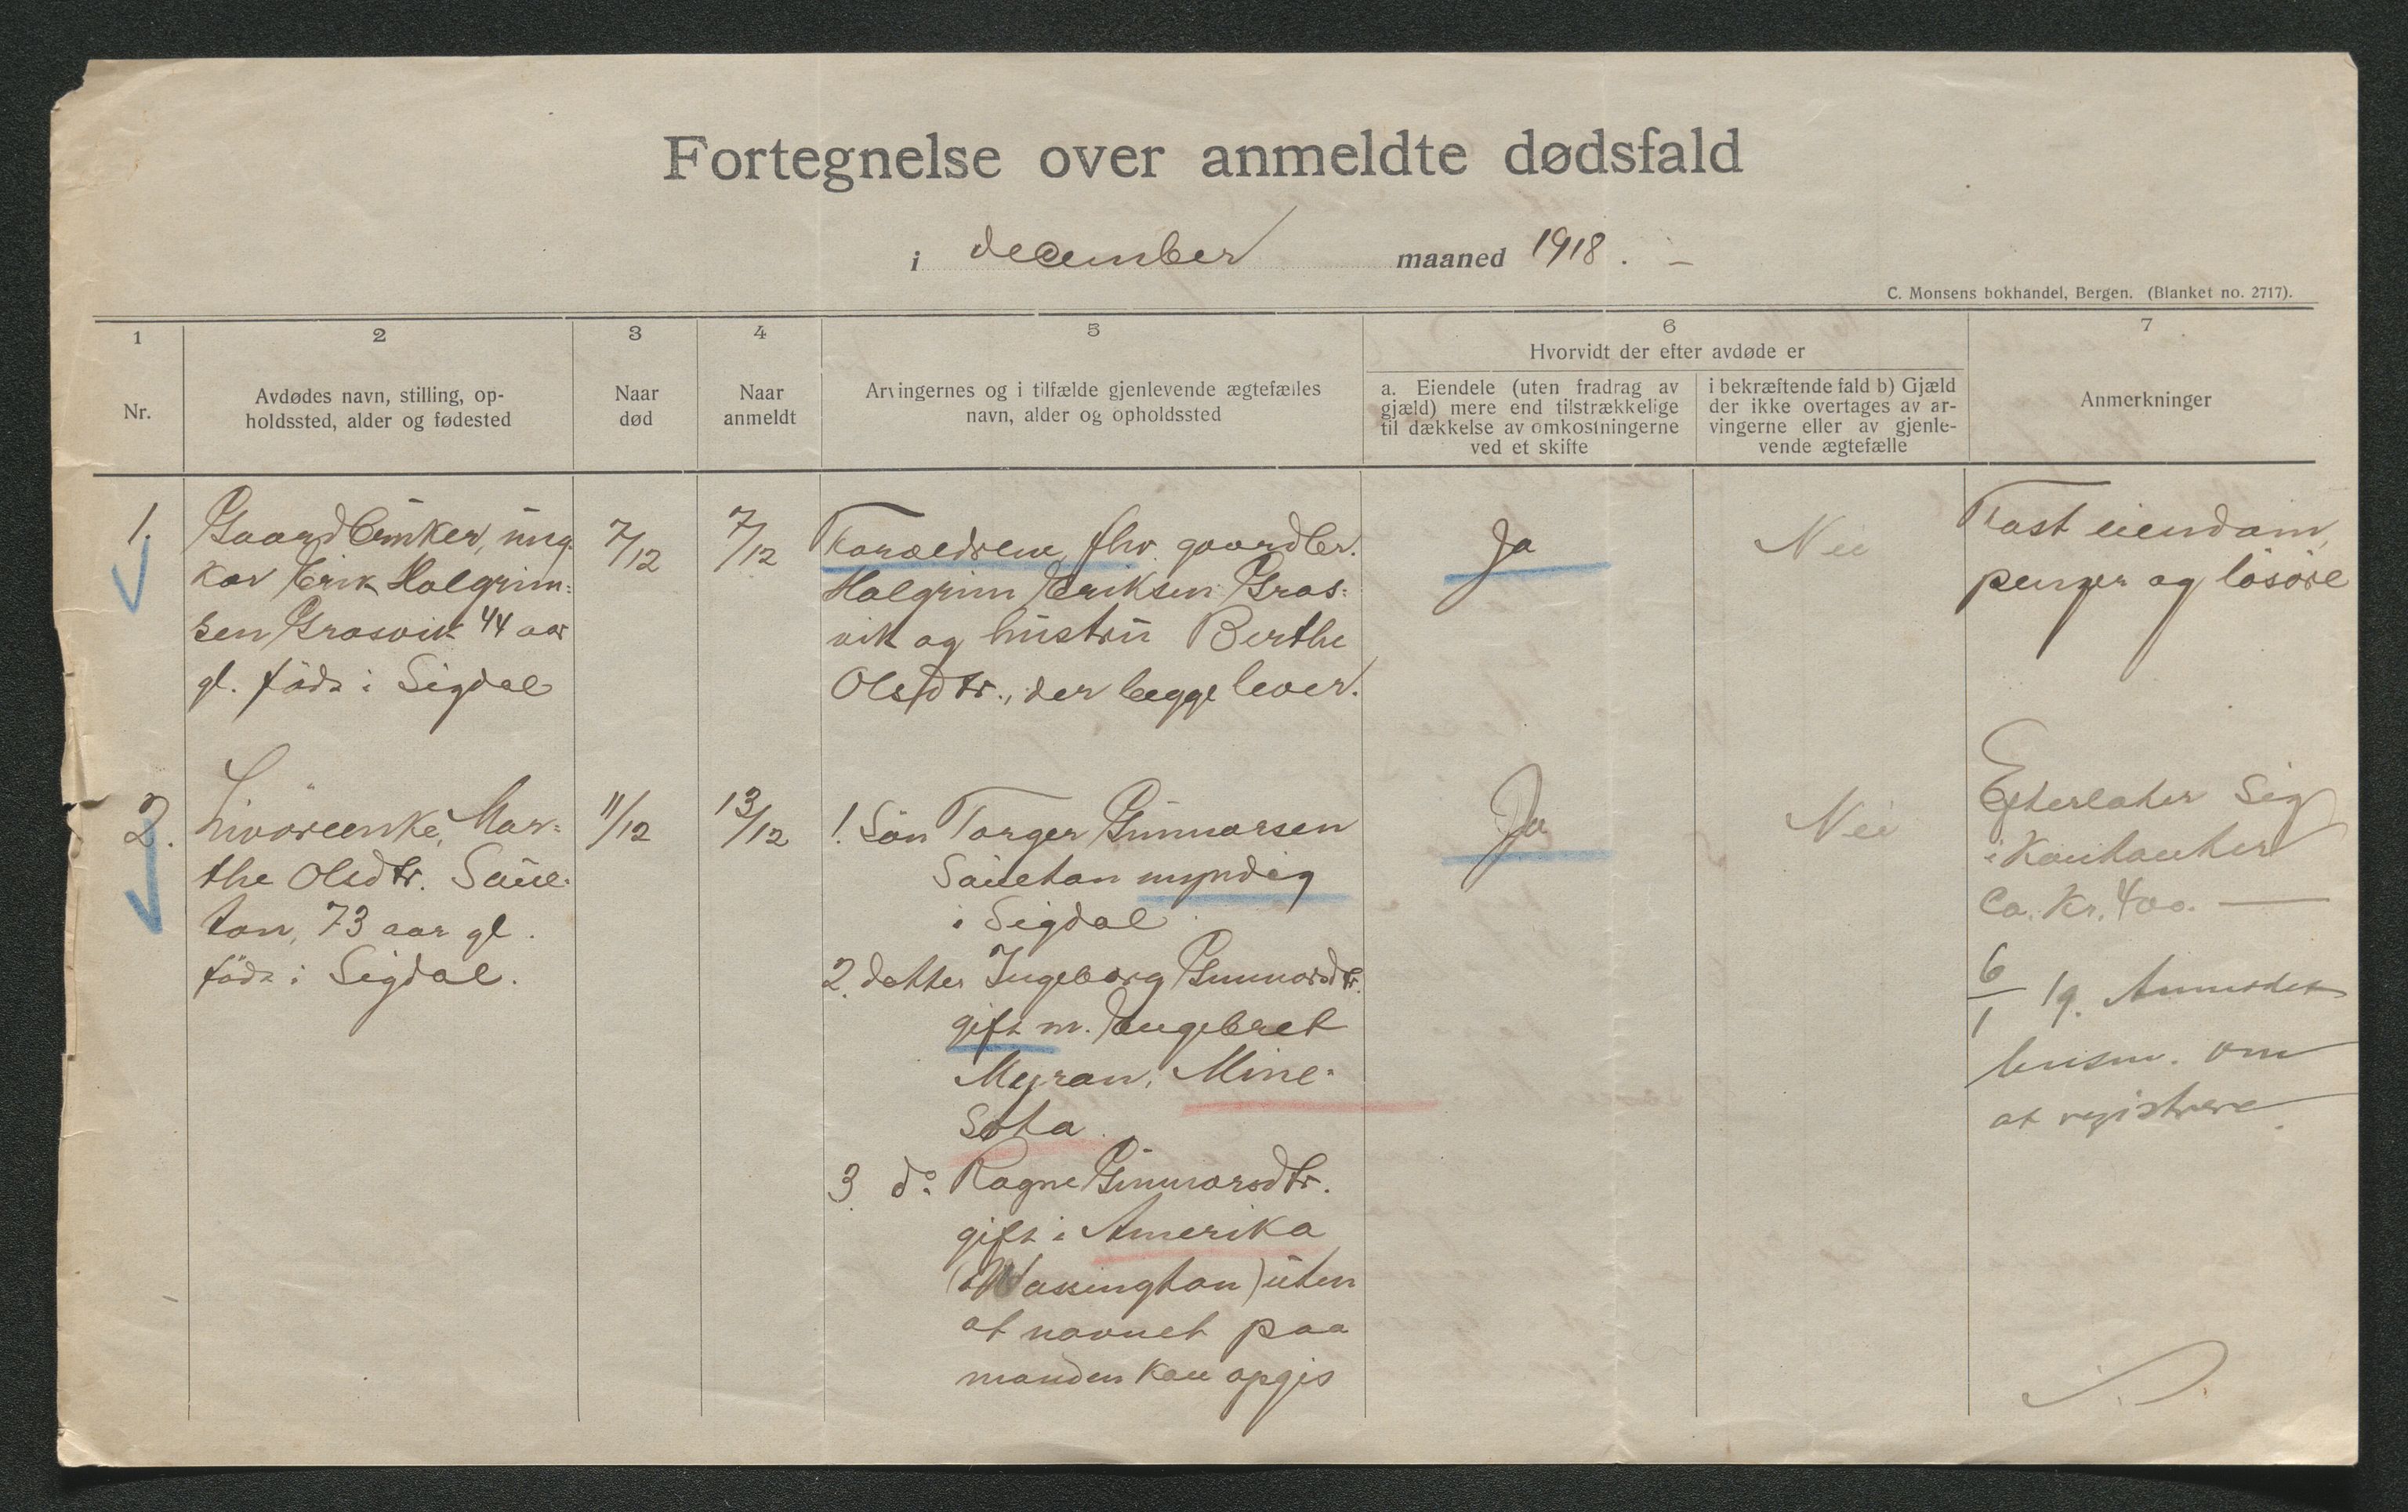 Fortegnelse over anmeldte dødsfald
i december maaned 1918. –
C. Monsens bokhandel, Bergen. (Blanket no. 2717).
1
Nr.
2
Avdødes navn, stilling, op-
holdssted, alder og fødested
3
Naar
død
4
Naar
anmeldt
5
Arvingernes og i tilfælde gjenlevende ægtefælles
navn, alder og opholdssted
6
Hvorvidt der efter avdøde er
a. Eiendele (uten fradrag av
gjæld) mere end tilstrækkelige
til dækkelse av omkostningerne
ved et skifte
i bekræftende fald b) Gjæld
der ikke overtages av ar-
vingerne eller av gjenle-
vende ægtefælle
7
Anmerkninger
1.
Gaardbruker, ung
kar Erik Halgrim-
sen Grasvik 44 aar
gl. född i Sigdal
7/12
7/12
Foræedrene, fhv. gaardbr.
Halgrim Eriksen Gras-
vik og hustru Berthe
Olsdtr., der begge lever.
Ja
Nei
Fast eiendom,
penger og lösöre
2.
Livöreenke, Mar-
the Olsdtr. Saue-
ton, 73 aar gl.
föd i Sigdal.
11/12
13/12
1. Sön Torger Gunnarsen
Saueton myndig
i Sigdal
2. datter Ingeborg Gunnarsdtr.
gift m. Engebret
Myran, Mine-
sota
3 do. Ragne Gunnarsdtr.
gift i Amerika
(Wassington) uten
at navnet paa
manden kan opgis
Ja
Nei
Efterlater sig
i kontanter
Ca. Kr. 400. —
6/1 19. Anmodet
lensm. om
at registrere.